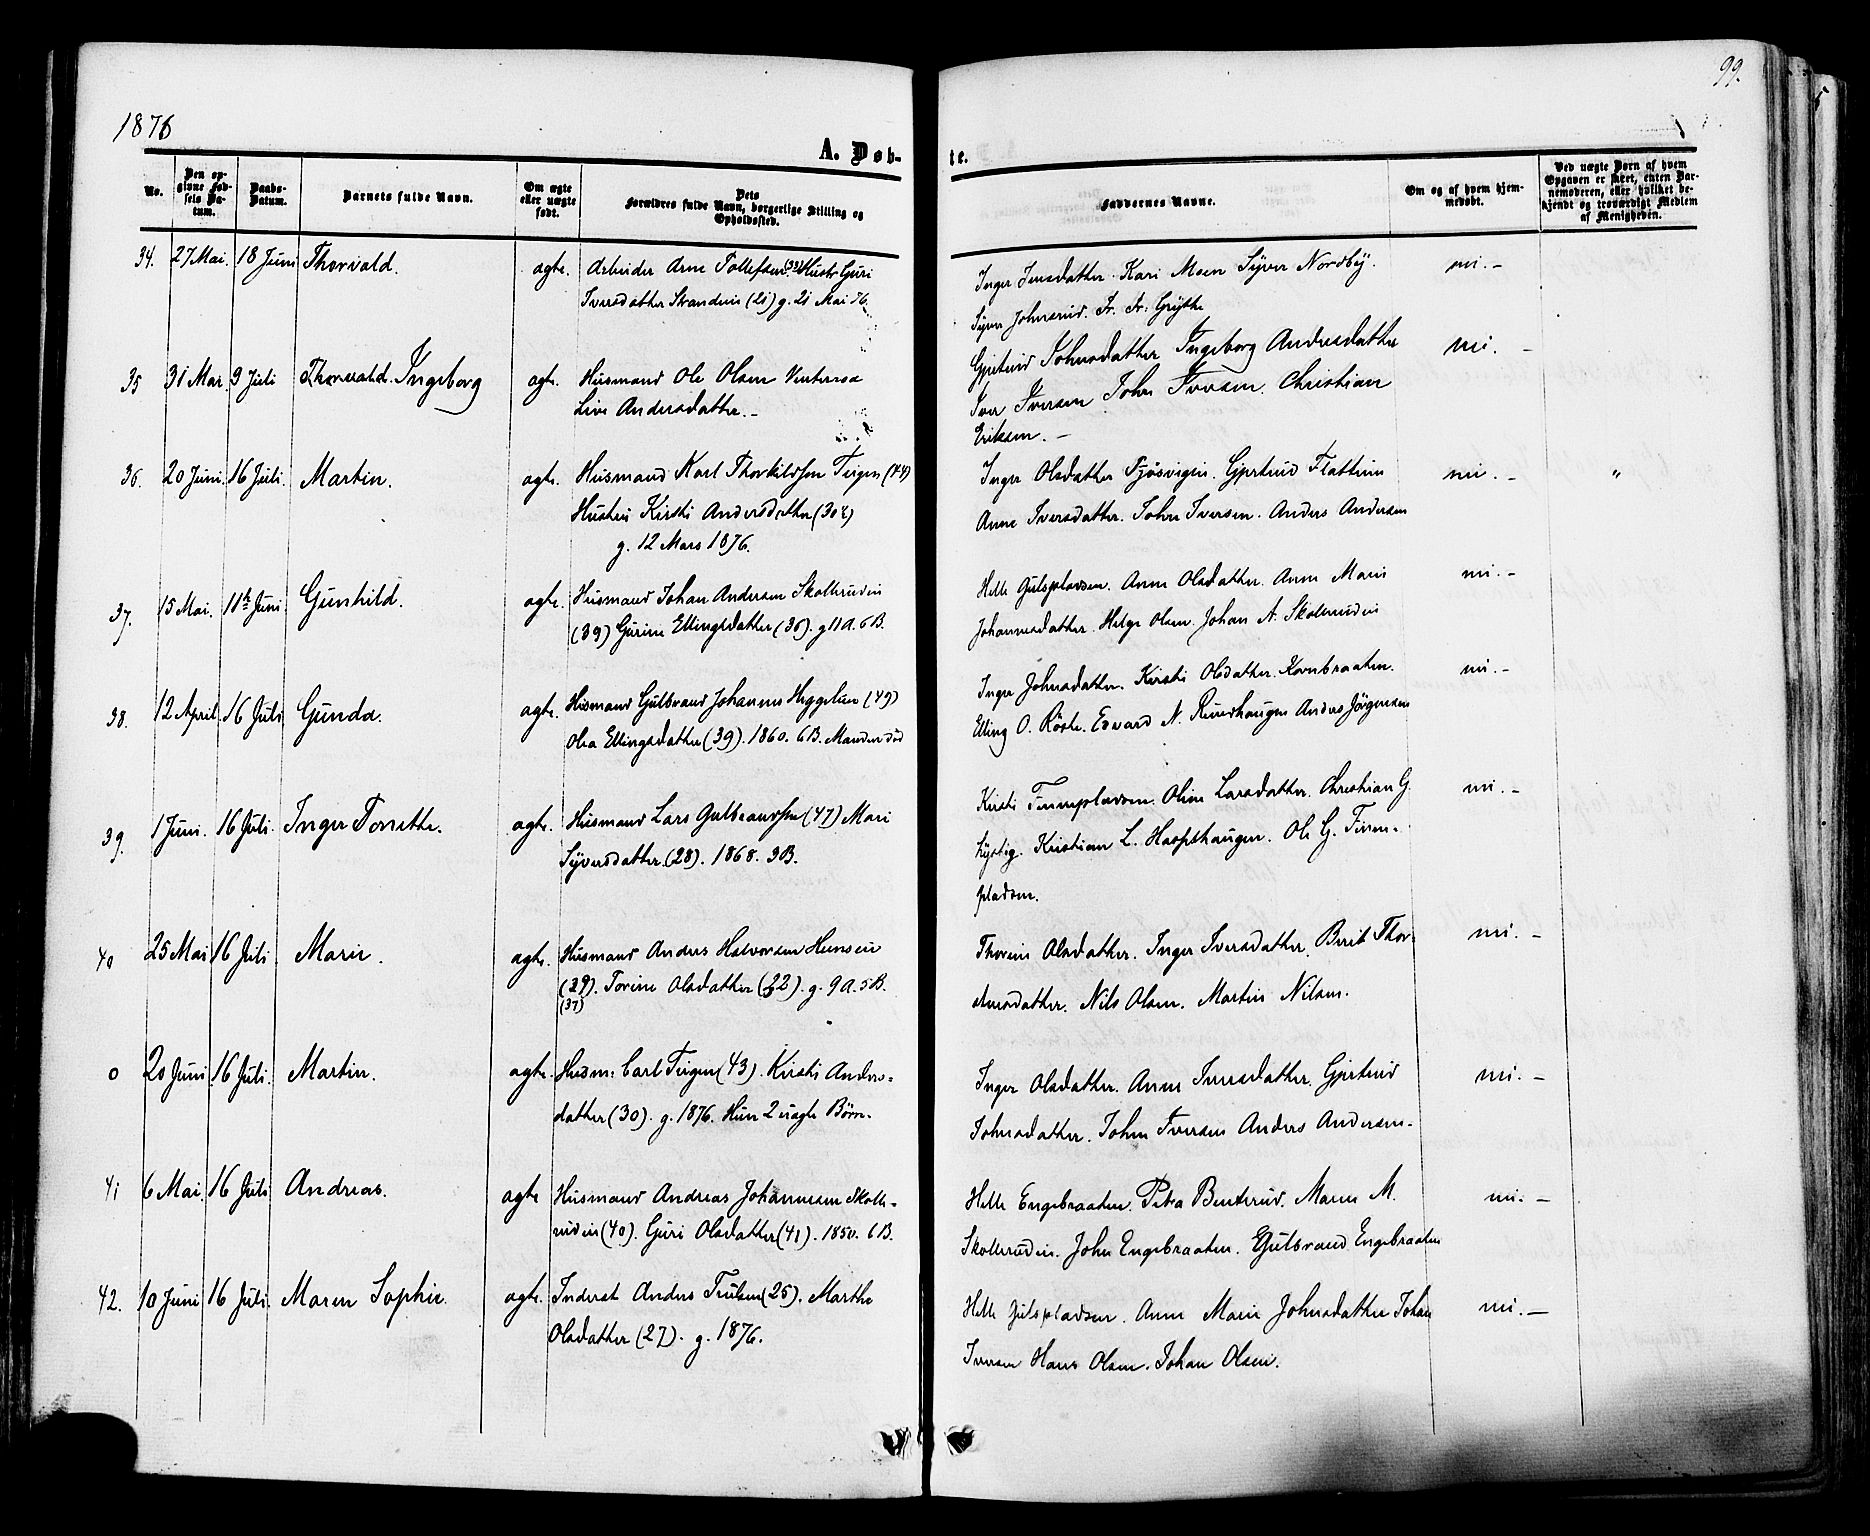 99.
1876
A. Døb-
te.
No.
Den op-
givne Fød-
sels Da-
tum.
Daabs-
Datum.
Barnets fulde Navn.
Om ægte
eller uægte
født.
Dets
Forældres fulde Navn, borgerlige Stilling og
Opholdssted.
Faddernes Navne.
Om og af hvem hjem-
medøbt.
Ved uægte Børn af hvem
Opgaven er skeet, enten Bar-
nemoderen, eller hvilket be-
kjendt og troværdigt Medlem
af Menigheden.
34. 27 Mai. 18 Juni Thorvald. ægte. Arbeider Arne Tollefsen (33) Hustr Guri
Iversdatter Strandeie (21) g. 21 Mai 76.
Inger Jensdatter. Kari Moen Syver Nordby. nei. -
Syver Johnsrud. Fr. Fr: Grythe
35 31 Mar. 9 Juli Thorvald. Ingeborg ægte. Husmand Ole Olsen
Live Andersdatter. -
Gjertrud Johnsdatter Ingeborg Andersdatter nei. -
Iver Iversen John Iversen. Christian
Eriksen. -
36. 20 Juni. 16 Juli. Martin. ægte. Husmand Karl Thorkildsen Teigen (44)
Hustru Kirsti Andersdatter (30)
g. 12 Mars 1876.
Inger Olsdatter Gjertrud nei. - "
Anne Iversdatter. John Iversen. Anders Andersen
37. 15 Mai. 11te Juni Gunhild. ægte. Husmand Johan Andersen Skollerudeie
(39) Gurine Ellingsdatter (36). g 11 A. 6 B.
Helle Gulsplassen. Anne Olsdatter. Anne Marie nei. -
Johannesdatter. Helge Olsen. Johan A. Skollerudeie
38. 12 April. 16 Juli Gunda. ægte. Husmand Gulbrand Johannes Heggelien (49)
Olea Ellingsdatter (39). 1860. 6 B. Manden død
Inger Johnsdatter. Kirsti Olsdatter. Kornbraaten. nei. -
Elling O. Røste. Edvard N. Anders Jörgensen
39. 1 Juni. 16 Juli. Inger Torette. ægte. Husmand Lars Gulbrandsen (47) Mari
Syversdatter. (28). 1868. 3 B.
Kirsti Finnepladsen. Oline Larsdatter. Christian G. nei. -
Lystig. Kristian L. Haapshaugen. Ole G. Finne-
pladsen.
40 25 Mai 16 Juli Marie. ægte. Husmand Anders Halvorsen Hunseie
(29). Torine Olsdatter (32). g. 9 A. 5 B.
(37)
Thorine Olsdatter. Inger Iversdatter. Berit Thor- nei. -
stensdatter. Nils Olsen. Martin Nilsen.
0 20 Juni 16 Juli. Martin. ægte. Husm: Carl Teigen (43). Kirsti Anders-
datter (30). g. 1876. Hun 2 uægte Børn.
Inger Olsdatter. Anne Iversdatter. Gjertrud nei. -
Johnsdatter. John Iversen Anders Andersen.
41 6 Mai. 16 Juli Andreas. ægte Husmand Andreas Johannesen Skolle-
rudeie (40). Guri Olsdatter (41). 1850. 6 B.
Helle Engebraaten. Petra Benterud. Maren M. nei. -
Skollerudeie. John Engebraaten. Gulbrand Engebraaten
42. 10 Juni 16 Juli. Maren Sophie. ægte. Inderst Anders Trulsen (25). Marthe
Olsdatter (27). g. 1876.
Helle Gulspladsen. Anne Marie Johnsdatter Johan nei. -
Iversen Hans Olsen. Johan Olsen.